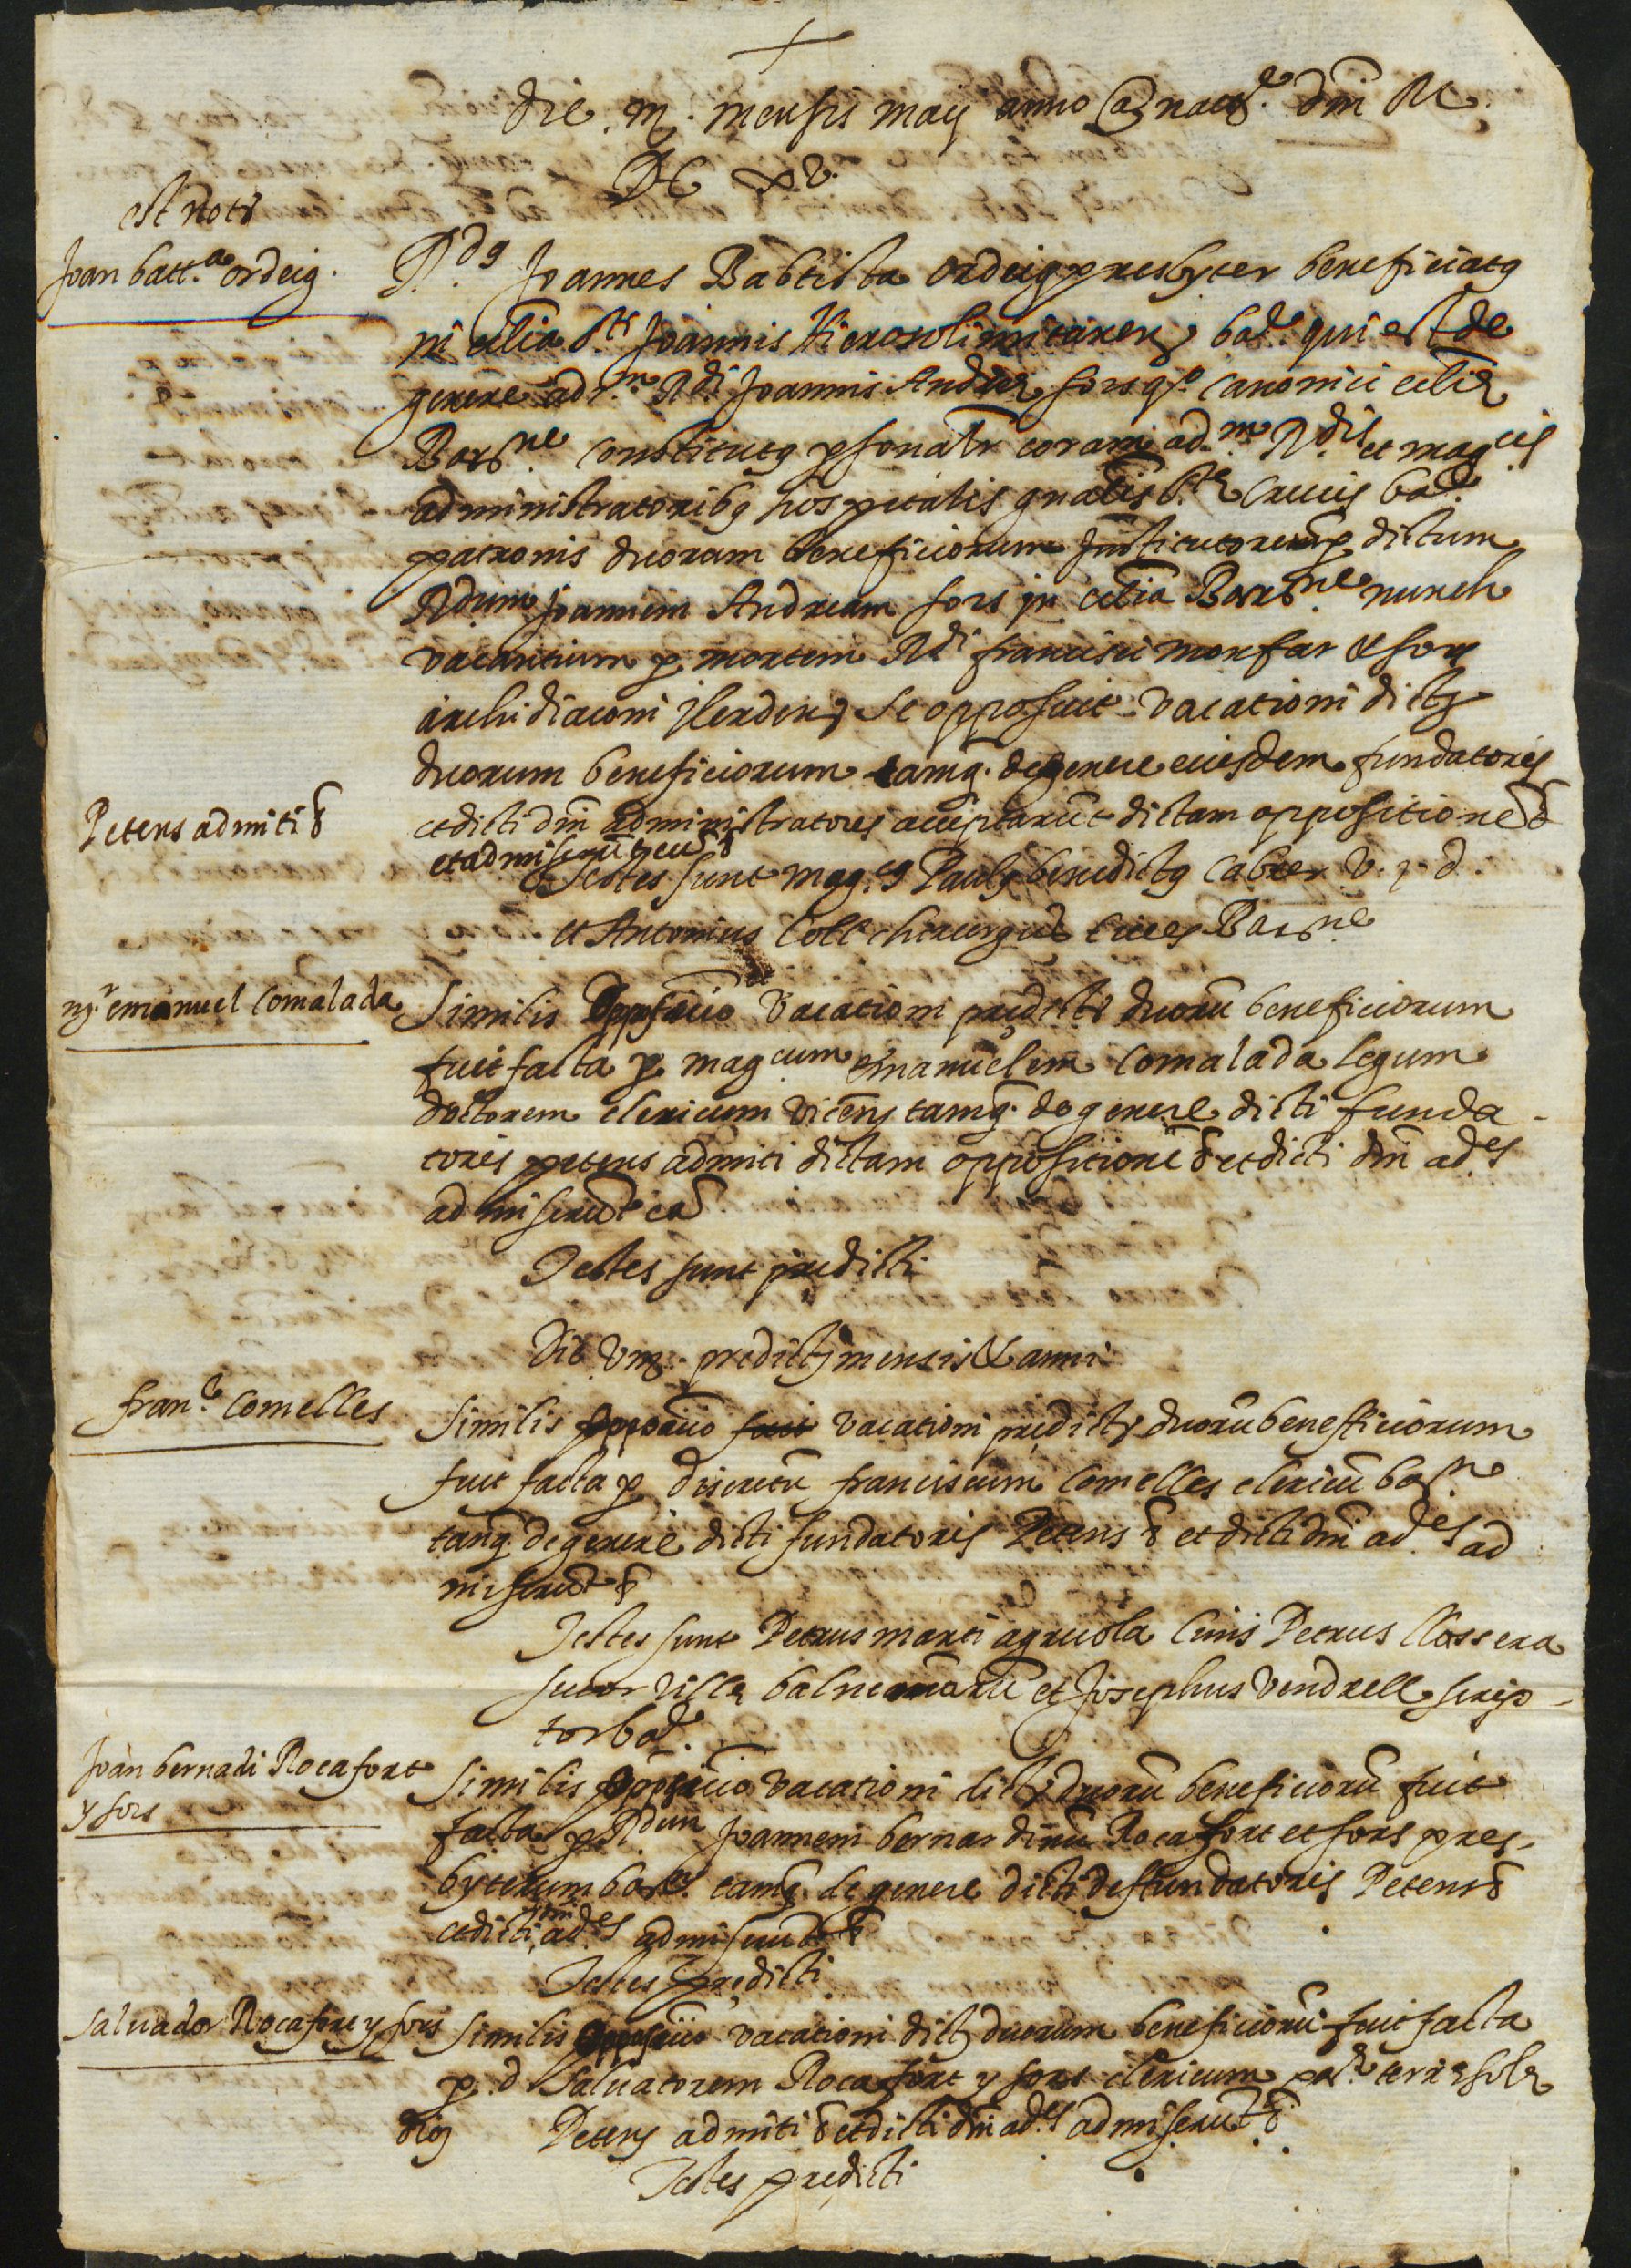 die. iij. mensis maij anno a nat.e dni M
DC xv.
est not
Joan batt.a ordeig.
R.dus Joannes Babtista ordeig presbyter beneficiatus
in ecclia s.ti Joannis Hierosolimitaneren bar.e qui est de
genere ad.m R.di Joannis Andree fors q.o canonici eclie
Barne constitutus psonalr coram ad.m R.dis et mag.cis
administratoribus hospitalis gnalis s.te Crucis bar.e
patronis duoram beneficiorum Jnstitutorum p dictum
Rdum Joannem Andream fors jn eclia Barne nunch
vacantium p mortem Rdi francisci monfar & fors
archidiaconi jlerden se opposuit vacationi dictor
duorum beneficiorum tamq. de genere eiusdem fundatoris
Petens admiti &
et dicti dni administratores acceptarut dictam oppositione &
et admiserut eu &
Testes sunt mag.cus Paulus benedictus Cabrer v. j. d.
et Antonius Coll chirurgus Cives Barne
mj.r emanuel Comalada
Similis opposicio vacationi predict duoru beneficiorum
fuit facta p magcum emanuelem Comalada legum
doctorem clericum vicens tamq. de genere dicti funda-
toris petens admiti dictam oppositione & et dicti dni ad.es
admiserut ea
Testes sunt predicti
Die viij. predictj mensis & anni
fran.c Comelles
Similis opposicio fuit vacationi predictor duoru beneficiorum
fuit facta p discretu franciscum Comelles clericu bar.ne
tanq. de genere dicti fundatoris Petens & et dicti dni ad.es ad
miserut &
Testes sunt Petrus marti agricola Civis Petrus Clossera
sutor ville balnearu et Josephus Vendrell scrip-
tor bar.e
Joan bernadi Rocafort
y fors
Similis opposicio vacationi dictor duoru beneficioru fuit
facta p R.dum Joannem bernardinu Rocafort et fors pres-
byterum bar.e tamq. de genere dicti de fundatoris Petens &
et dicti dni ad.es admiserut &
Testes predicti
Saluador Rocafort y fors
Similis opposicio vacationi dictor duorum beneficioru fuit facta
p d Saluatorem Rocafort y fors clericum terre
Petens admiti & et dicti dni ad.es admiserut &
Testes predicti